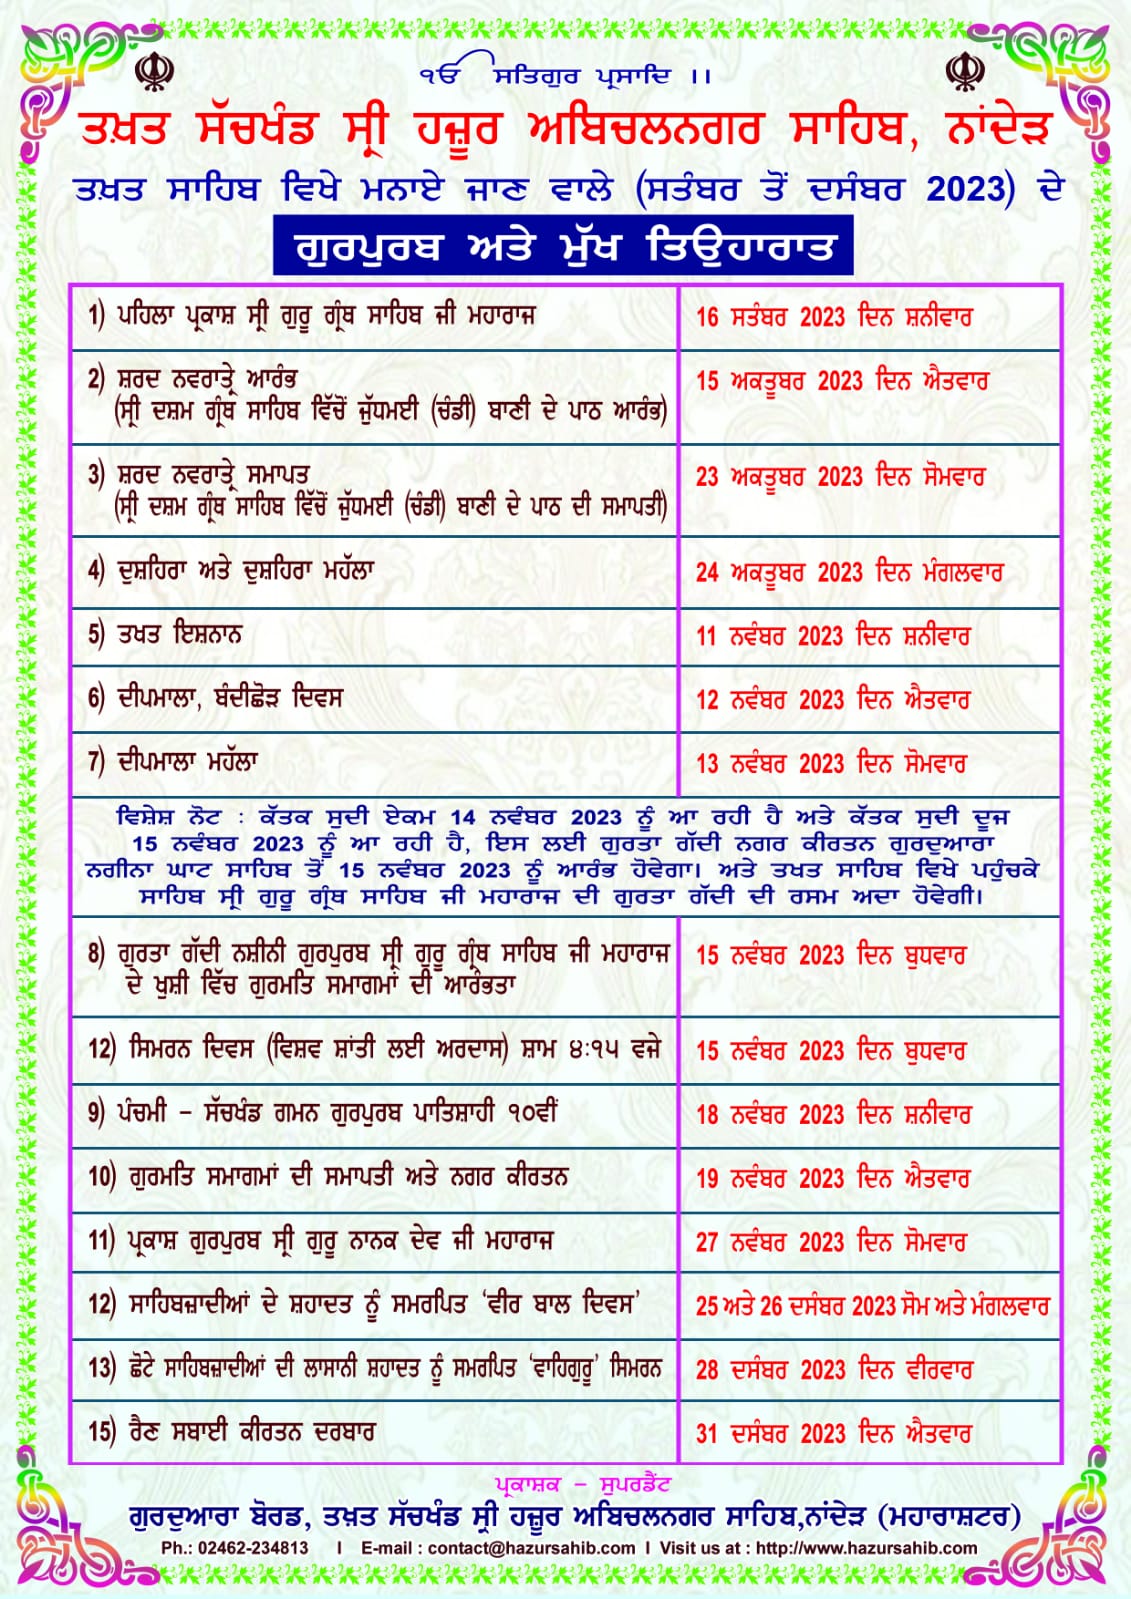 ੴ ਸਤਿਗੁਰ ਪ੍ਰਸਾਦਿ ।।
ਤਖ਼ਤ ਸੱਚਖੰਡ ਸ੍ਰੀ ਹਜ਼ੂਰ ਅਬਿਚਲਨਗਰ ਸਾਹਿਬ, ਨਾਂਦੇੜ
ਤਖ਼ਤ ਸਾਹਿਬ ਵਿਖੇ ਮਨਾਏ ਜਾਣ ਵਾਲੇ (ਸਤੰਬਰ ਤੋਂ ਦਸੰਬਰ 2023) ਦੇ
ਗੁਰਪੁਰਬ ਅਤੇ ਮੁੱਖ ਤਿਉਹਾਰਾਤ
1) ਪਹਿਲਾ ਪ੍ਰਕਾਸ਼ ਸ੍ਰੀ ਗੁਰੂ ਗ੍ਰੰਥ ਸਾਹਿਬ ਜੀ ਮਹਾਰਾਜ
16 ਸਤੰਬਰ 2023 ਦਿਨ ਸ਼ਨੀਵਾਰ
2) ਸ਼ਰਦ ਨਵਰਾਤ੍ਰੇ ਆਰੰਭ
(ਸ੍ਰੀ ਦਸ਼ਮ ਗ੍ਰੰਥ ਸਾਹਿਬ ਵਿੱਚੋਂ ਜੁੱਧਮਈ (ਚੰਡੀ) ਬਾਣੀ ਦੇ ਪਾਠ ਆਰੰਭ)
15 ਅਕਤੂਬਰ 2023 ਦਿਨ ਐਤਵਾਰ
3) ਸ਼ਰਦ ਨਵਰਾਤ੍ਰੇ ਸਮਾਪਤ
(ਸ੍ਰੀ ਦਸ਼ਮ ਗ੍ਰੰਥ ਸਾਹਿਬ ਵਿੱਚੋਂ ਜੁੱਧਮਈ (ਚੰਡੀ) ਬਾਣੀ ਦੇ ਪਾਠ ਦੀ ਸਮਾਪਤੀ)
23 ਅਕਤੂਬਰ 2023 ਦਿਨ ਸੋਮਵਾਰ
4) ਦੁਸ਼ਹਿਰਾ ਅਤੇ ਦੁਸ਼ਹਿਰਾ ਮਹੱਲਾ
24 ਅਕਤੂਬਰ 2023 ਦਿਨ ਮੰਗਲਵਾਰ
5) ਤਖਤ ਇਸ਼ਨਾਨ
11 ਨਵੰਬਰ 2023 ਦਿਨ ਸ਼ਨੀਵਾਰ
6) ਦੀਪਮਾਲਾ, ਬੰਦੀਛੋੜ ਦਿਵਸ
12 ਨਵੰਬਰ 2023 ਦਿਨ ਐਤਵਾਰ
7) ਦੀਪਮਾਲਾ ਮਹੱਲਾ
13 ਨਵੰਬਰ 2023 ਦਿਨ ਸੋਮਵਾਰ
ਵਿਸ਼ੇਸ਼ ਨੋਟ : ਕੱਤਕ ਸੁਦੀ ਏਕਮ 14 ਨਵੰਬਰ 2023 ਨੂੰ ਆ ਰਹੀ ਹੈ ਅਤੇ ਕੱਤਕ ਸੁਦੀ ਦੂਜ
15 ਨਵੰਬਰ 2023 ਨੂੰ ਆ ਰਹੀ ਹੈ, ਇਸ ਲਈ ਗੁਰਤਾ ਗੱਦੀ ਨਗਰ ਕੀਰਤਨ ਗੁਰਦੁਆਰਾ
ਨਗੀਨਾ ਘਾਟ ਸਾਹਿਬ ਤੋਂ 15 ਨਵੰਬਰ 2023 ਨੂੰ ਆਰੰਭ ਹੋਵੇਗਾ। ਅਤੇ ਤਖਤ ਸਾਹਿਬ ਵਿਖੇ ਪਹੁੰਚਕੇ
ਸਾਹਿਬ ਸ੍ਰੀ ਗੁਰੂ ਗ੍ਰੰਥ ਸਾਹਿਬ ਜੀ ਮਹਾਰਾਜ ਦੀ ਗੁਰਤਾ ਗੱਦੀ ਦੀ ਰਸਮ ਅਦਾ ਹੋਵੇਗੀ।
8) ਗੁਰਤਾ ਗੱਦੀ ਨਸ਼ੀਨੀ ਗੁਰਪੁਰਬ ਸ੍ਰੀ ਗੁਰੂ ਗ੍ਰੰਥ ਸਾਹਿਬ ਜੀ ਮਹਾਰਾਜ
ਦੇ ਖੁਸ਼ੀ ਵਿੱਚ ਗੁਰਮਤਿ ਸਮਾਗਮਾਂ ਦੀ ਆਰੰਭਤਾ
15 ਨਵੰਬਰ 2023 ਦਿਨ ਬੁਧਵਾਰ
12) ਸਿਮਰਨ ਦਿਵਸ (ਵਿਸ਼ਵ ਸ਼ਾਂਤੀ ਲਈ ਅਰਦਾਸ) ਸ਼ਾਮ ੪:੧੫ ਵਜੇ
15 ਨਵੰਬਰ 2023 ਦਿਨ ਬੁਧਵਾਰ
9) ਪੰਚਮੀ – ਸੱਚਖੰਡ ਗਮਨ ਗੁਰਪੁਰਬ ਪਾਤਿਸ਼ਾਹੀ ੧੦ਵੀਂ
18 ਨਵੰਬਰ 2023 ਦਿਨ ਸ਼ਨੀਵਾਰ
10) ਗੁਰਮਤਿ ਸਮਾਗਮਾਂ ਦੀ ਸਮਾਪਤੀ ਅਤੇ ਨਗਰ ਕੀਰਤਨ
19 ਨਵੰਬਰ 2023 ਦਿਨ ਐਤਵਾਰ
11) ਪ੍ਰਕਾਸ਼ ਗੁਰਪੁਰਬ ਸ੍ਰੀ ਗੁਰੂ ਨਾਨਕ ਦੇਵ ਜੀ ਮਹਾਰਾਜ
27 ਨਵੰਬਰ 2023 ਦਿਨ ਸੋਮਵਾਰ
12) ਸਾਹਿਬਜ਼ਾਦੀਆਂ ਦੇ ਸ਼ਹਾਦਤ ਨੂੰ ਸਮਰਪਿਤ ‘ਵੀਰ ਬਾਲ ਦਿਵਸ’
25 ਅਤੇ 26 ਦਸੰਬਰ 2023 ਸੋਮ ਅਤੇ ਮੰਗਲਵਾਰ
13) ਛੋਟੇ ਸਾਹਿਬਜ਼ਾਦੀਆਂ ਦੀ ਲਾਸਾਨੀ ਸ਼ਹਾਦਤ ਨੂੰ ਸਮਰਪਿਤ ‘ਵਾਹਿਗੁਰੂ’ ਸਿਮਰਨ
28 ਦਸੰਬਰ 2023 ਦਿਨ ਵੀਰਵਾਰ
15) ਰੈਣ ਸਬਾਈ ਕੀਰਤਨ ਦਰਬਾਰ
31 ਦਸੰਬਰ 2023 ਦਿਨ ਐਤਵਾਰ
ਪ੍ਰਕਾਸ਼ਕ – ਸੁਪਰਡੈਂਟ
ਗੁਰਦੁਆਰਾ ਬੋਰਡ, ਤਖ਼ਤ ਸੱਚਖੰਡ ਸ੍ਰੀ ਹਜ਼ੂਰ ਅਬਿਚਲਨਗਰ ਸਾਹਿਬ,ਨਾਂਦੇੜ (ਮਹਾਰਾਸ਼ਟਰ)
Ph.: 02462-234813 I E-mail : contact@hazursahib.com I Visit us at : http://www.hazursahib.com